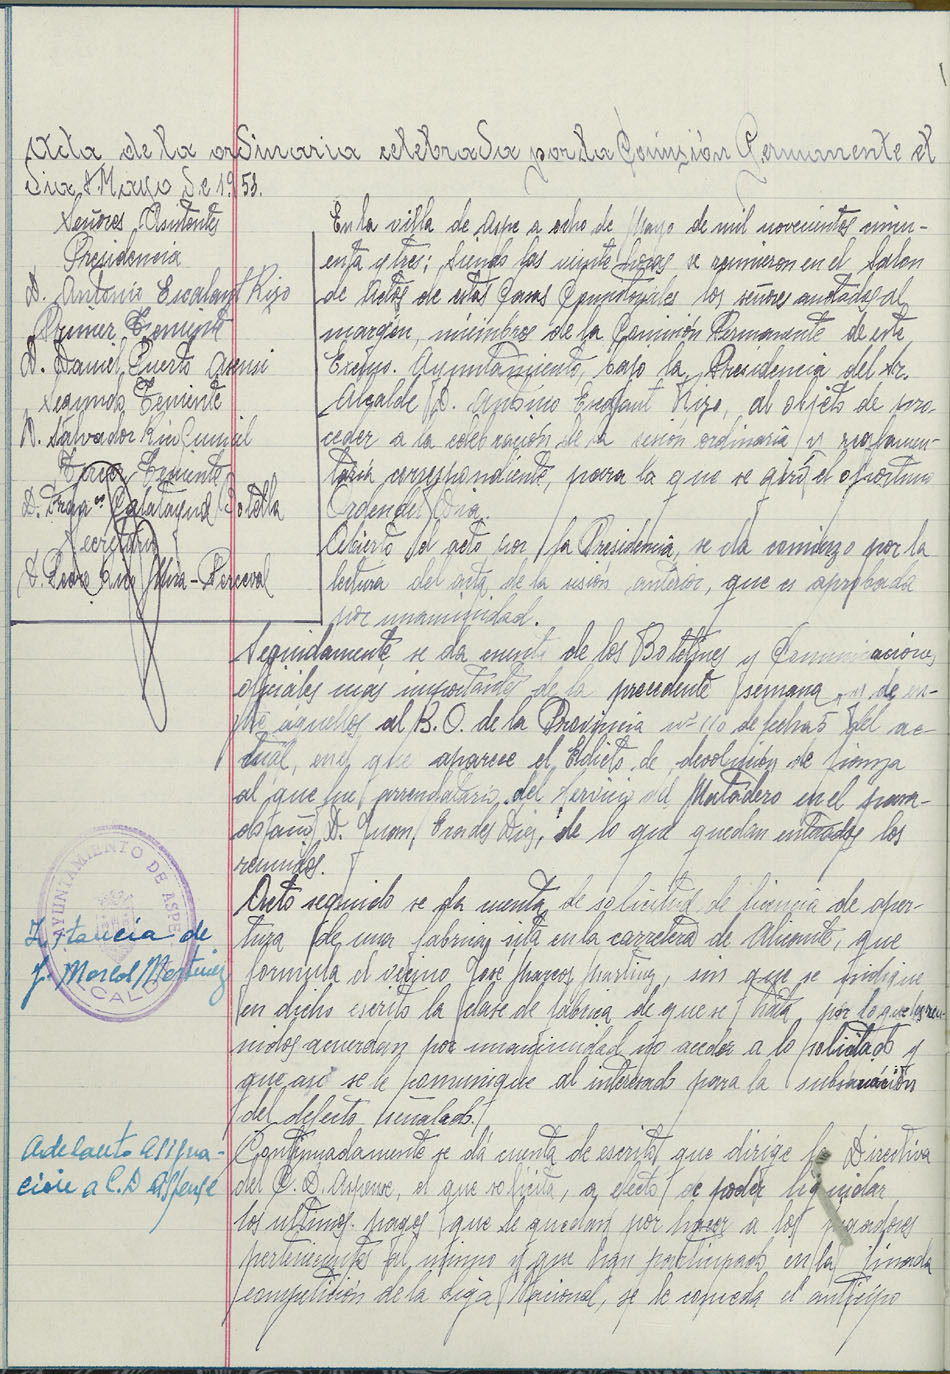 Acta de la ordinaria celebrada por la Comisión Permanente el
dia 8 Mayo de 1953.
Señores Asistentes
Presidencia
D. Antonio Escalant Rizo
Primer Teniente
D. Daniel Puerto Asensi
Segundo Teniente
D. Salvador
Tercer Teniente
D. Franco Calatayud Botella
Secretario
D. Pedro Mira-Perceval
En la villa de Aspe a ocho de Mayo de mil novecientos cincu-
enta y tres; siendo las veinte horas se reunieron en el Salon
de Actos de estas Casas Consistoriales los señores anotados al
margen, miembros de la Comisión Permanente de este
Excmo. Ayuntamiento, bajo la Presidencia del Sr.
Alcalde D. Antonio Escalant Rizo, al objeto de pro-
ceder a la celebración de la sesión ordinaria y reglamen-
taria correspondiente, para la que se giró el oportuno
Orden del Dia.
Abierto el acto por la Presidencia, se da comienzo por la
lectura del acta de la sesión anterior, que es aprobada
por unanimidad.
Seguidamente se da cuenta de los Boletines y Comunicaciones
oficiales mas importantes de la precedente semana, y de en-
tre aquellos al B.O. de la Provincia nº 110 de fecha 5 del ac-
tual, en el que aparece el Edicto de devolución de fianza
al que fue arrendatario del servicio del Matadero en el pasa-
do año D. Juan de lo que quedan enterados los
reunidos.
Acto seguido se da cuenta de solicitud de licencia de aper-
tura de una fabrica sita en la carretera de Alicante, que
formula el vecino José Marcos Martinez, sin que se indique
en dicho escrito la clase de fabrica de que se trata por lo que los reu-
nidos acuerdan por unanimidad no acceder a lo solicitado y
que asi se le comunique al interesado para la subsanación
del defecto señalado.
Continuadamente se dá cuenta de escrito que dirige la Directiva
del C. D. Aspense, el que solicita, a efecto de poder liquidar
los ultimos pagos que le quedan por hacer a los jugadores
pertenecientes al mismo y que han participado en la finada
competición de la Liga Nacional, se le conceda el anticipo
AYUNTAMIENTO DE ASPE
Instancia de
J. Marcos Martinez
Adelanto asigna-
ción a C.D Aspense